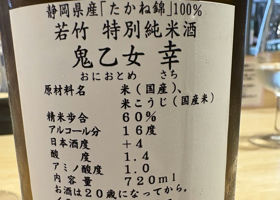 静岡県産「たかね錦」100%
若竹 特別純米酒
鬼乙女 幸
おにおとめ さち
原材料名 米(国産)、
米こうじ(国産米)
精米歩合 60%
アルコール分 16度
日本酒度 +4
酸度 1.4
アミノ酸度 1.0
内容量 720ml
お酒は20歳になってから。